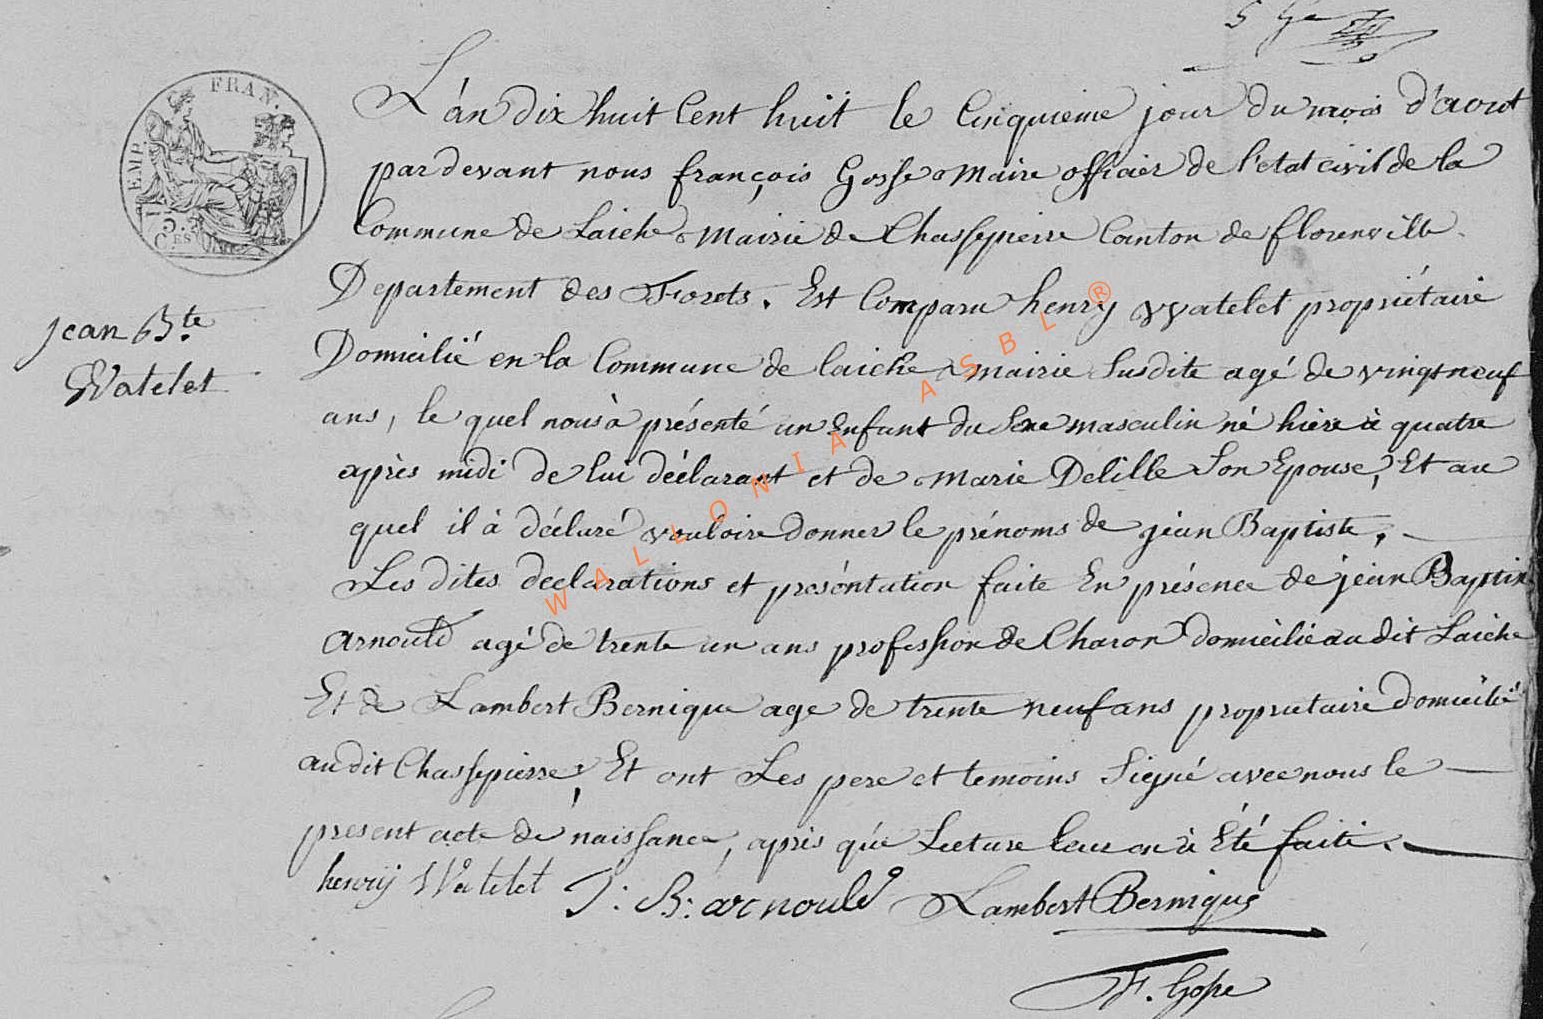 5 Ge
EMP. FRAN.
75.
C.ES
L'an dix huit Cent huit le Cinquieme jour du mois d'aout
par devant nous françois Gosse Maire officier de l'etat civil de la
Commune de Laiche Mairie de Chassepierre Canton de florenville
Departement des Forets. Est Comparu henry Watelet propriétaire
jean Bte
Watelet
Domicilié en la Commune de laiche mairie Susdite agé de vingt neuf
ans, le quel nous à présenté un Enfant du Sexe masculin né hière à quatre
après midi de lui déclarant et de Marie Delille Son Epouse, Et au
quel il à déclaré vouloire donner le prénoms de jean Baptiste.
Les dites declarations et preséntation faite En présence de jean Baptiste
arnould agé de trente un ans profession de Charon domicilié au dit Laiche
Et de Lambert Bernique age de trente neuf ans proprietaire domicilié
au dit Chassepierre, Et ont Les pere et temoins Signé avec nous le
present acte de naissance, après que Lecture leur en à Eté faite.
henrij Watelet J: B: arnould Lambert Bernique
F. Gosse
WALLONIA ASBL ®